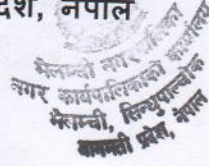 देश, नेपाल
मेलम्ची नगरपालिका
नगर कार्यपालिकाको कार्यालय
मेलम्ची, सिन्धुपाल्चोक
बागमती प्रदेश, नेपाल